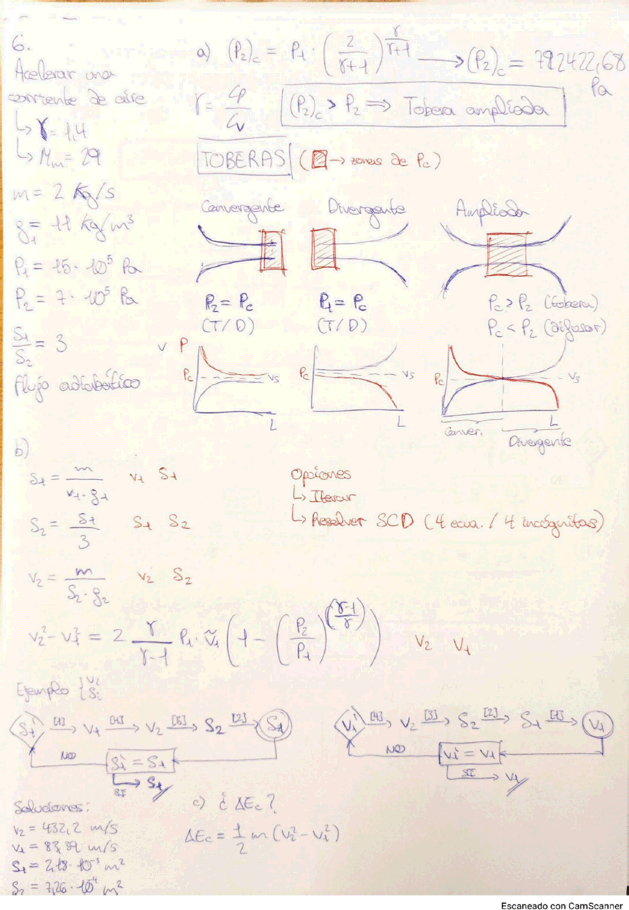 6.
Acelerar una
corriente de aire
↳ γ = 1,4
↳ Mm = 29
m = 2 Kg/s
ρ1 = 11 kg/m³
P1 = 15·10⁵ Pa
P2 = 7·10⁵ Pa
S1/S2 = 3
Flujo adiabático
a) (P2)c = P1 · (2/(γ+1))^(γ/(γ-1)) → (P2)c = 792422,68 Pa
γ = Cp/Cv
(P2)c > P2 ⟹ Tobera ampliada
TOBERAS ( → zonas de Pc)
Convergente Divergente Ampliada
P2 = Pc P1 = Pc Pc > P2 (tobera)
(T/D) (T/D) Pc < P2 (difusor)
v P
Pc vs Pc vs
L L L
Conver. Divergente
b)
S1 = m/(v1·ρ1) v1 S1
S2 = S1/3 S1 S2
v2 = m/(S2·ρ2) v2 S2
v2² - v1² = 2 γ/(γ-1) P1·ṽ1 (1 - (P2/P1)^((γ-1)/γ)) v2 v1
Opciones
↳ Iterar
↳ Resolver SCD (4 ecua. / 4 incógnitas)
Ejemplo { vi Si
S1 [1]→ v1 [4]→ v2 [3]→ S2 [2]→ S1
NO Si = S1
SI → S1
v1 [4]→ v2 [3]→ S2 [2]→ S1 [1]→ v1
NO vi = v1
SI → v1
Soluciones:
v2 = 432,2 m/s
v1 = 83,39 m/s
S1 = 2,18·10⁻³ m²
S2 = 7,26·10⁻⁴ m²
c) ¿ΔEc?
ΔEc = 1/2 m (v2² - v1²)
Escaneado con CamScanner